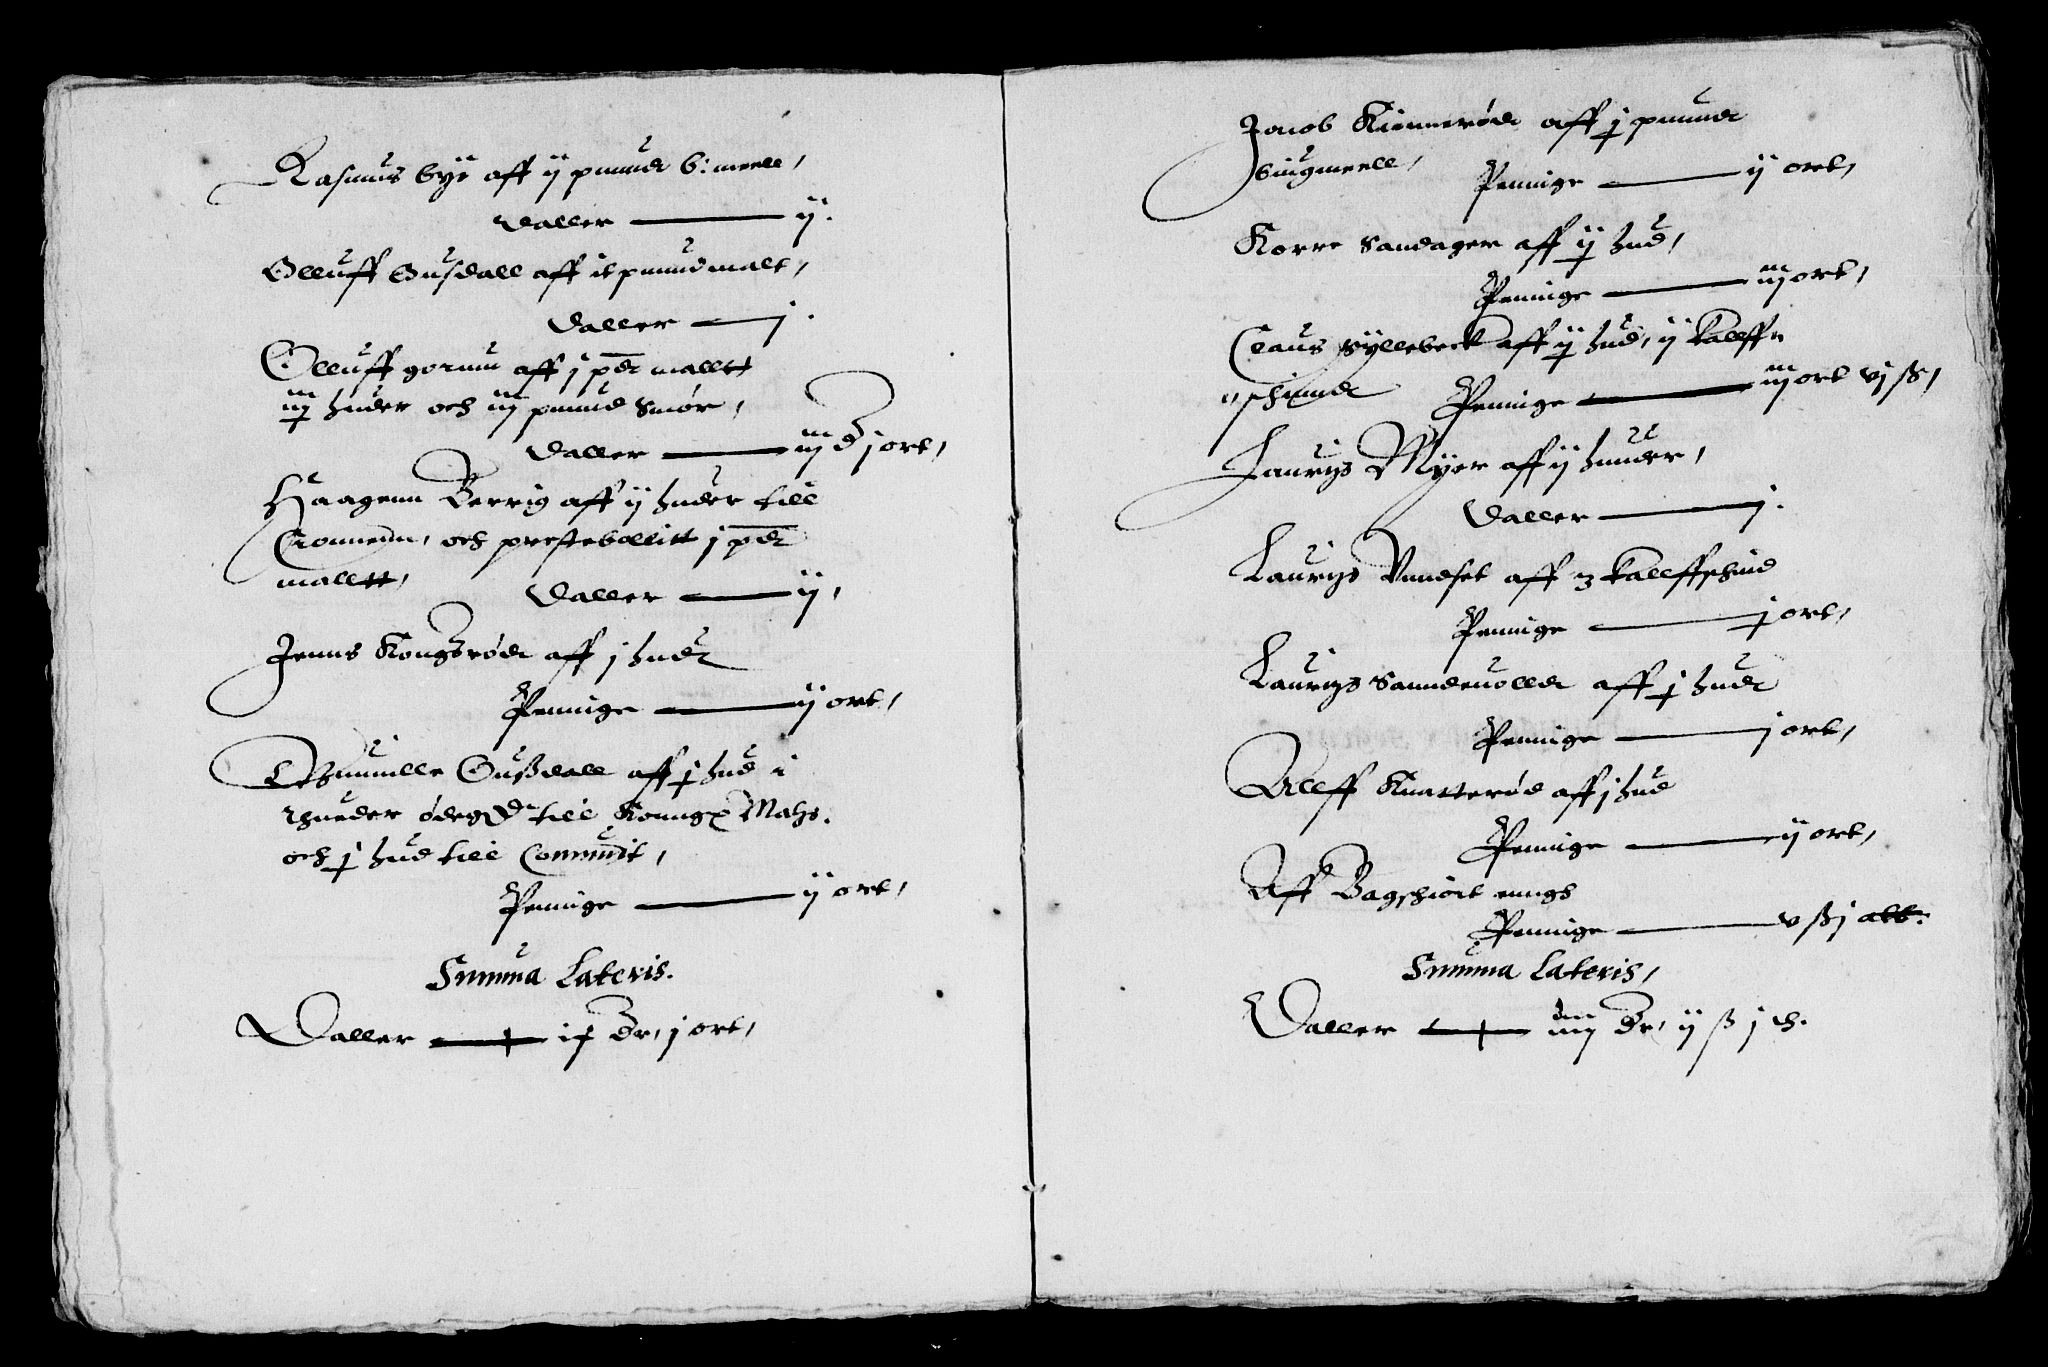 Rasmus Bye aff ij punndt b: meell,
Daller ij.
Olluff Gusdall aff it punnd malt,
Daller j.
Olluff gorum aff j pdt malltt
iij huder och iiij punnd Smør,
Daller iiij d j ort,
Haagenn Berrig aff ij huder till
Cronnenn, och prestebollitt j pdt
malltt, Daller ij,
Jenns Kongsrødt aff j hudt
Penninge ij ort,
Gunnille Gusdall aff j hud i
huder ødegd till Konng Matz.
och j hud till Communit,
Penninge ij ort,
Summa Lateris.
Daller dr, j ort,
Jacob Kinnerødt aff j punndt
biugmeell, Penninge ij ort,
Korre Sandager aff ij hud,
Penninge iij ort,
Claus Syllebeck aff ij hud, ij kallff
schinndt Penninge iij ort vj ß,
Lauritz Myer aff ij hunder,
Daller j.
Lauritz Vundset aff 3 kallffschind
Penninge j ort,
Lauritz Sanndeuolldt aff j hudt
Penninge j ort,
Alleff Knatterød aff j hud
Penninge ij ort,
Aff Bagschiøt enngh
Penninge v ß j alb.
Summa Lateris,
Daller iiij dr, ij ß j